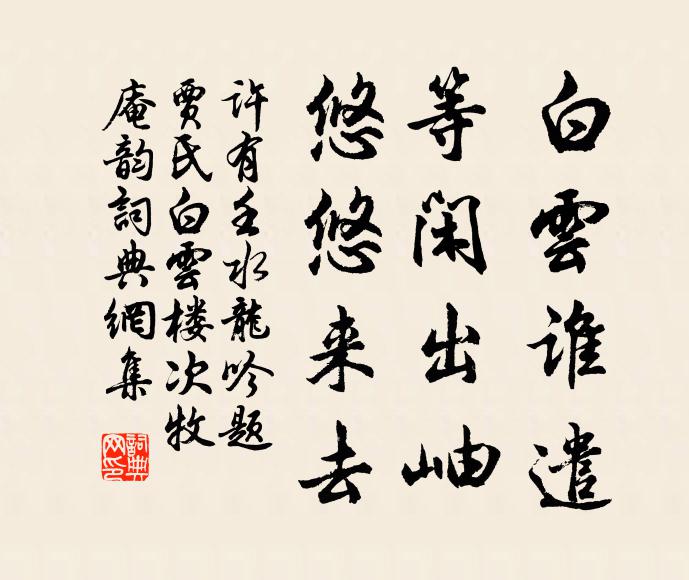 白雲谁遣
等闲出岫
悠悠来去
许有壬水龍吟题
贾氏白雲楼次牧
庵韵詞典網集
詞典
网印